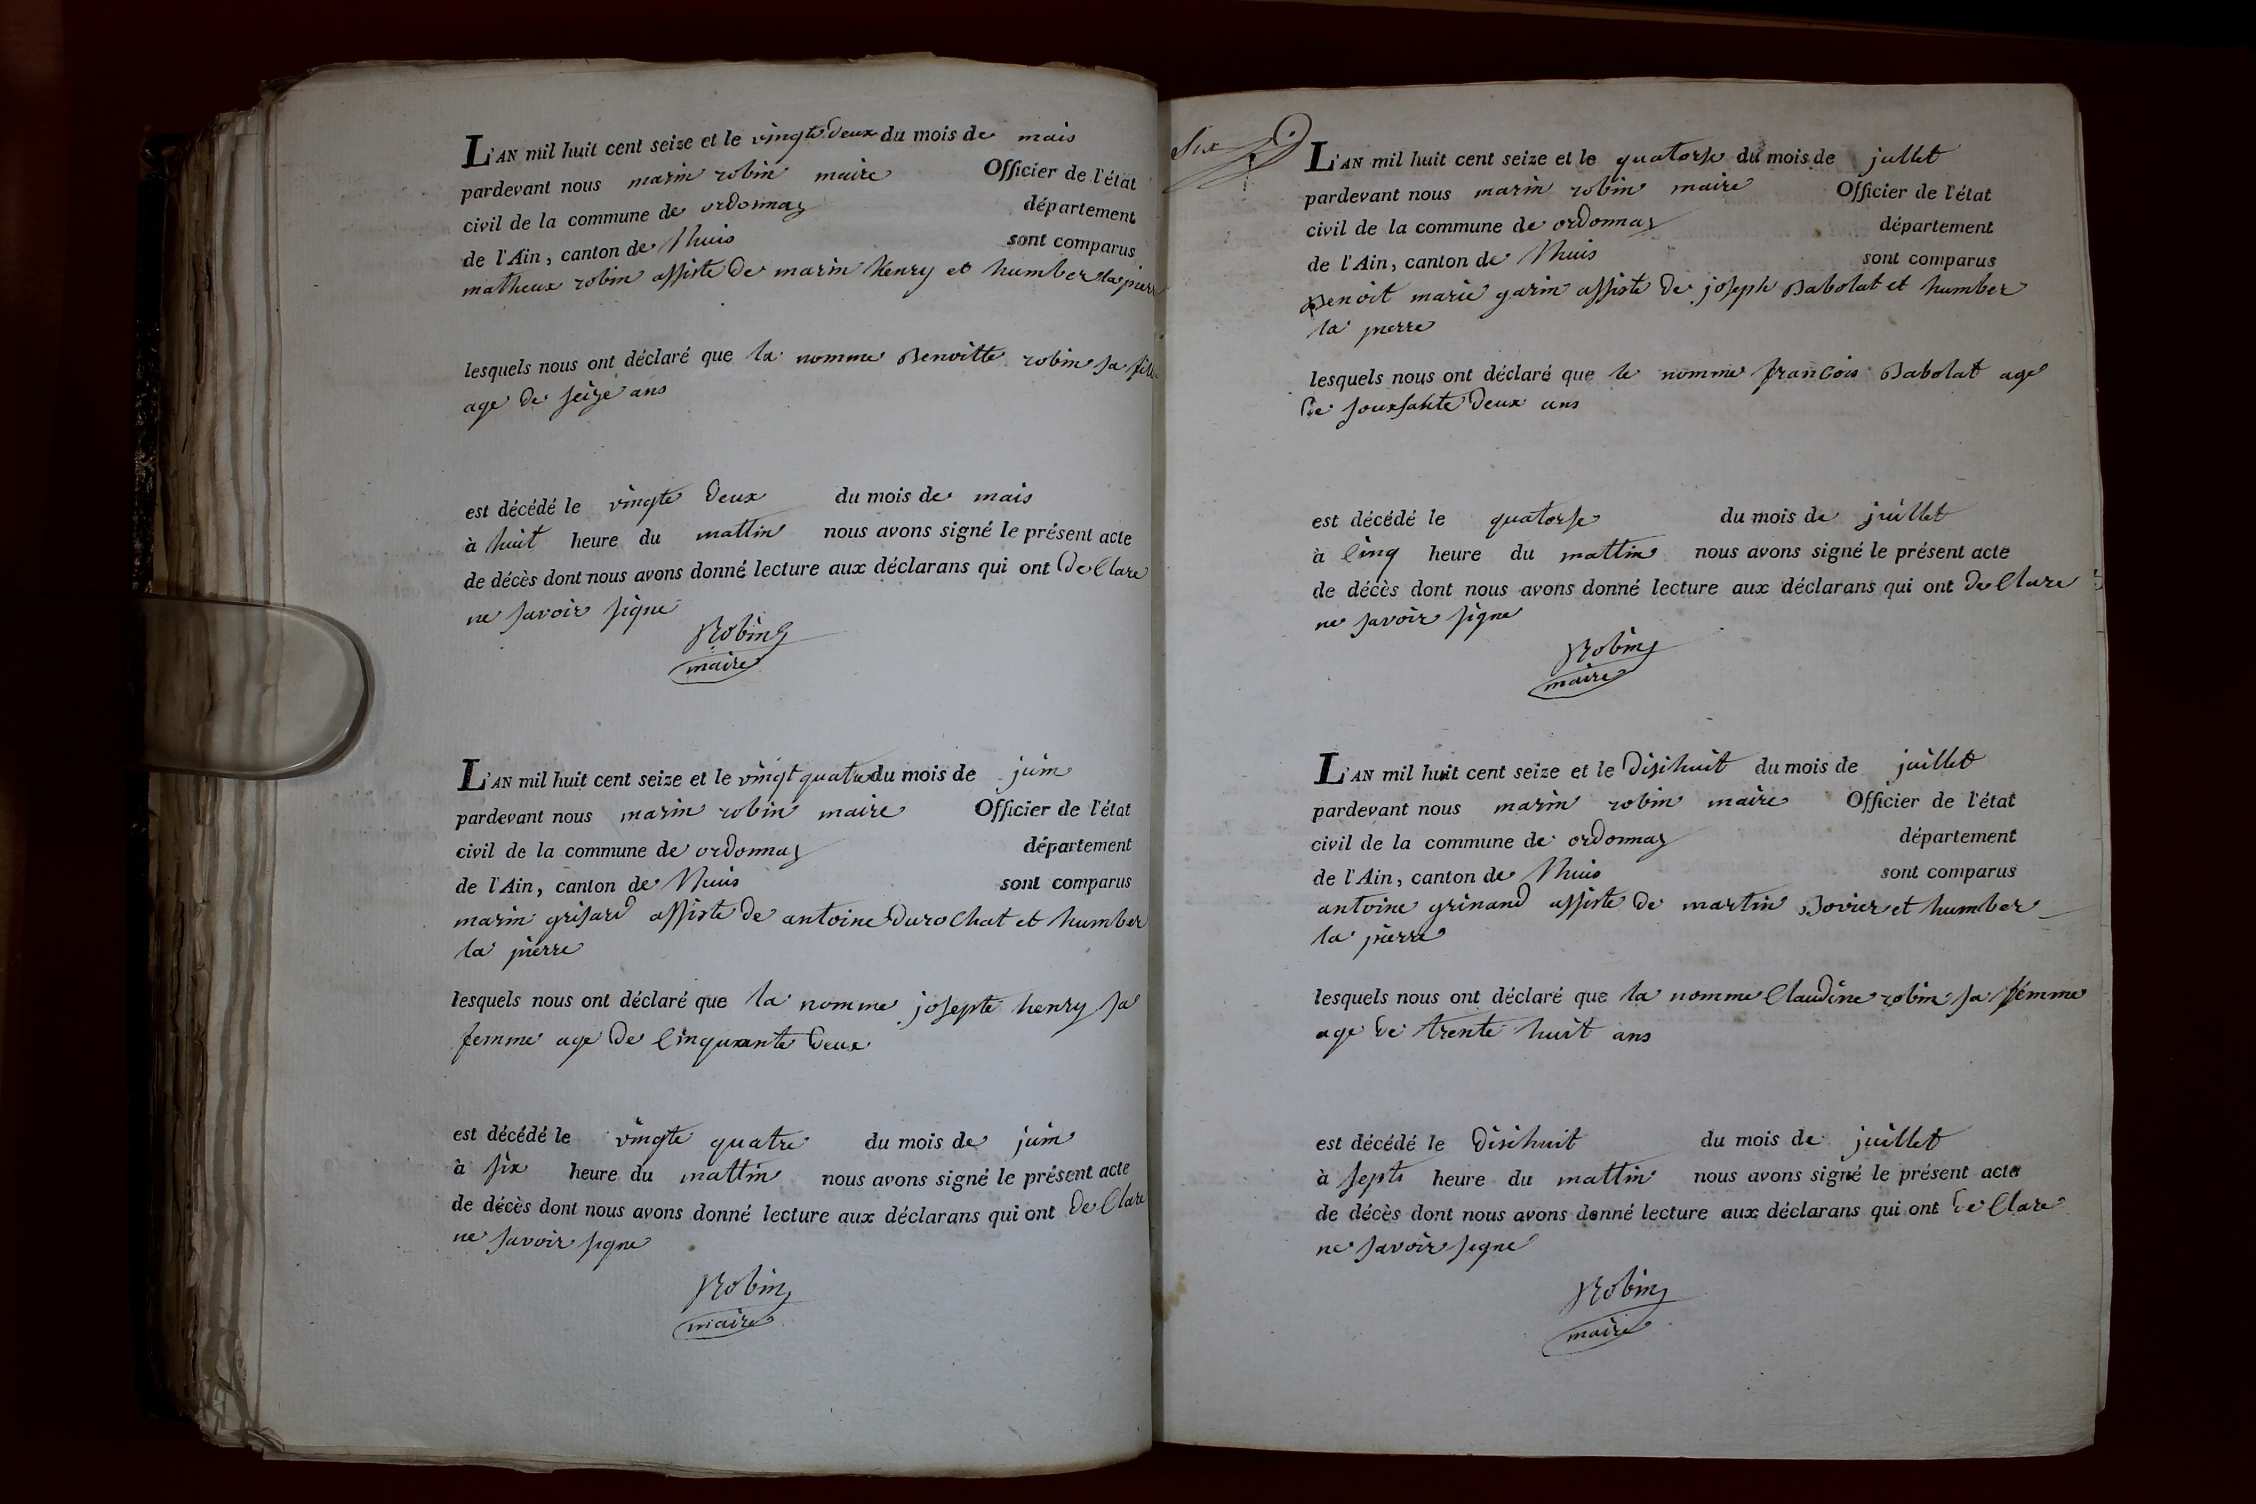 L'AN mil huit cent seize et le vingte deux du mois de mais
pardevant nous marin robin maire Officier de l'état
civil de la commune de ordonnaz département
de l'Ain, canton de Lhuis sont comparus
matheux robin assiste de marin henry et humber la pierre
lesquels nous ont déclaré que la nomme Benoitte robin sa fille
age de seize ans
est décédé le vingte deux du mois de mais
à huit heure du mattin nous avons signé le présent acte
de décès dont nous avons donné lecture aux déclarans qui ont de Clare
ne savoir signe
Robin
maire
L'AN mil huit cent seize et le vingt quatre du mois de juin
pardevant nous marin robin maire Officier de l'état
civil de la commune de ordonnaz département
de l'Ain, canton de Lhuis sont comparus
marin grisard assiste de antoine Durochat et humber
la pierre
lesquels nous ont déclaré que la nomme josepte henry sa
femme age de Cinquante deux
est décédé le vingte quatre du mois de juin
à six heure du mattin nous avons signé le présent acte
de décès dont nous avons donné lecture aux déclarans qui ont de Clare
ne savoir signe
Robin
maire
Six
L'AN mil huit cent seize et le quatorse du mois de jullet
pardevant nous marin robin maire Officier de l'état
civil de la commune de ordonnaz département
de l'Ain, canton de Lhuis sont comparus
Benoit marie garin assiste de joseph Babolat et humber
la pierre
lesquels nous ont déclaré que le nomme francois Babolat age
de souxsante deux ans
est décédé le quatorse du mois de juillet
à Cinq heure du mattin nous avons signé le présent acte
de décès dont nous avons donné lecture aux déclarans qui ont de Clare
ne savoir signe
Robin
maire
L'AN mil huit cent seize et le disihuit du mois de juillet
pardevant nous marin robin maire Officier de l'état
civil de la commune de ordonnaz département
de l'Ain, canton de Lhuis sont comparus
antoine grinand assiste de martin Bovier et humber
la pierre
lesquels nous ont déclaré que la nomme Claudine robin sa femme
age de trente huit ans
est décédé le disihuit du mois de juillet
à septs heure du mattin nous avons signé le présent acte
de décès dont nous avons donné lecture aux déclarans qui ont de Clare
ne savoir signe
Robin
maire